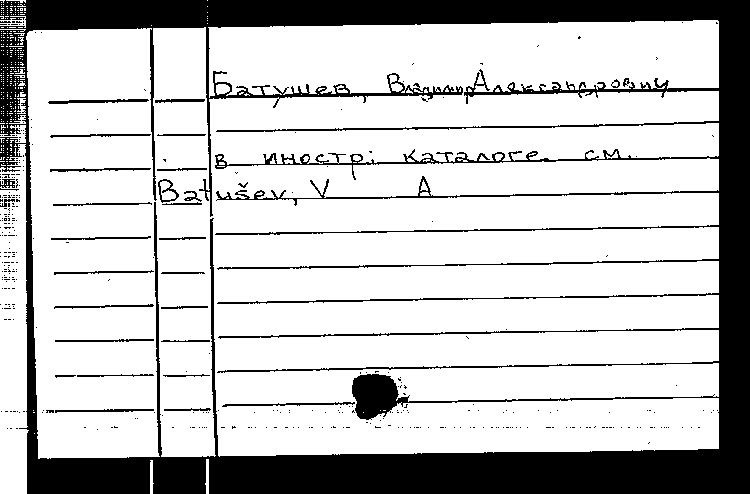 Батушев, Владимир Александрович
в иностр. каталоге см.
Batušev, V A